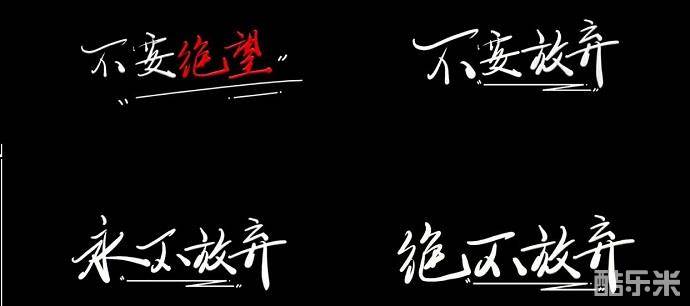 不要绝望
不要放弃
永不放弃
绝不放弃
酷乐米